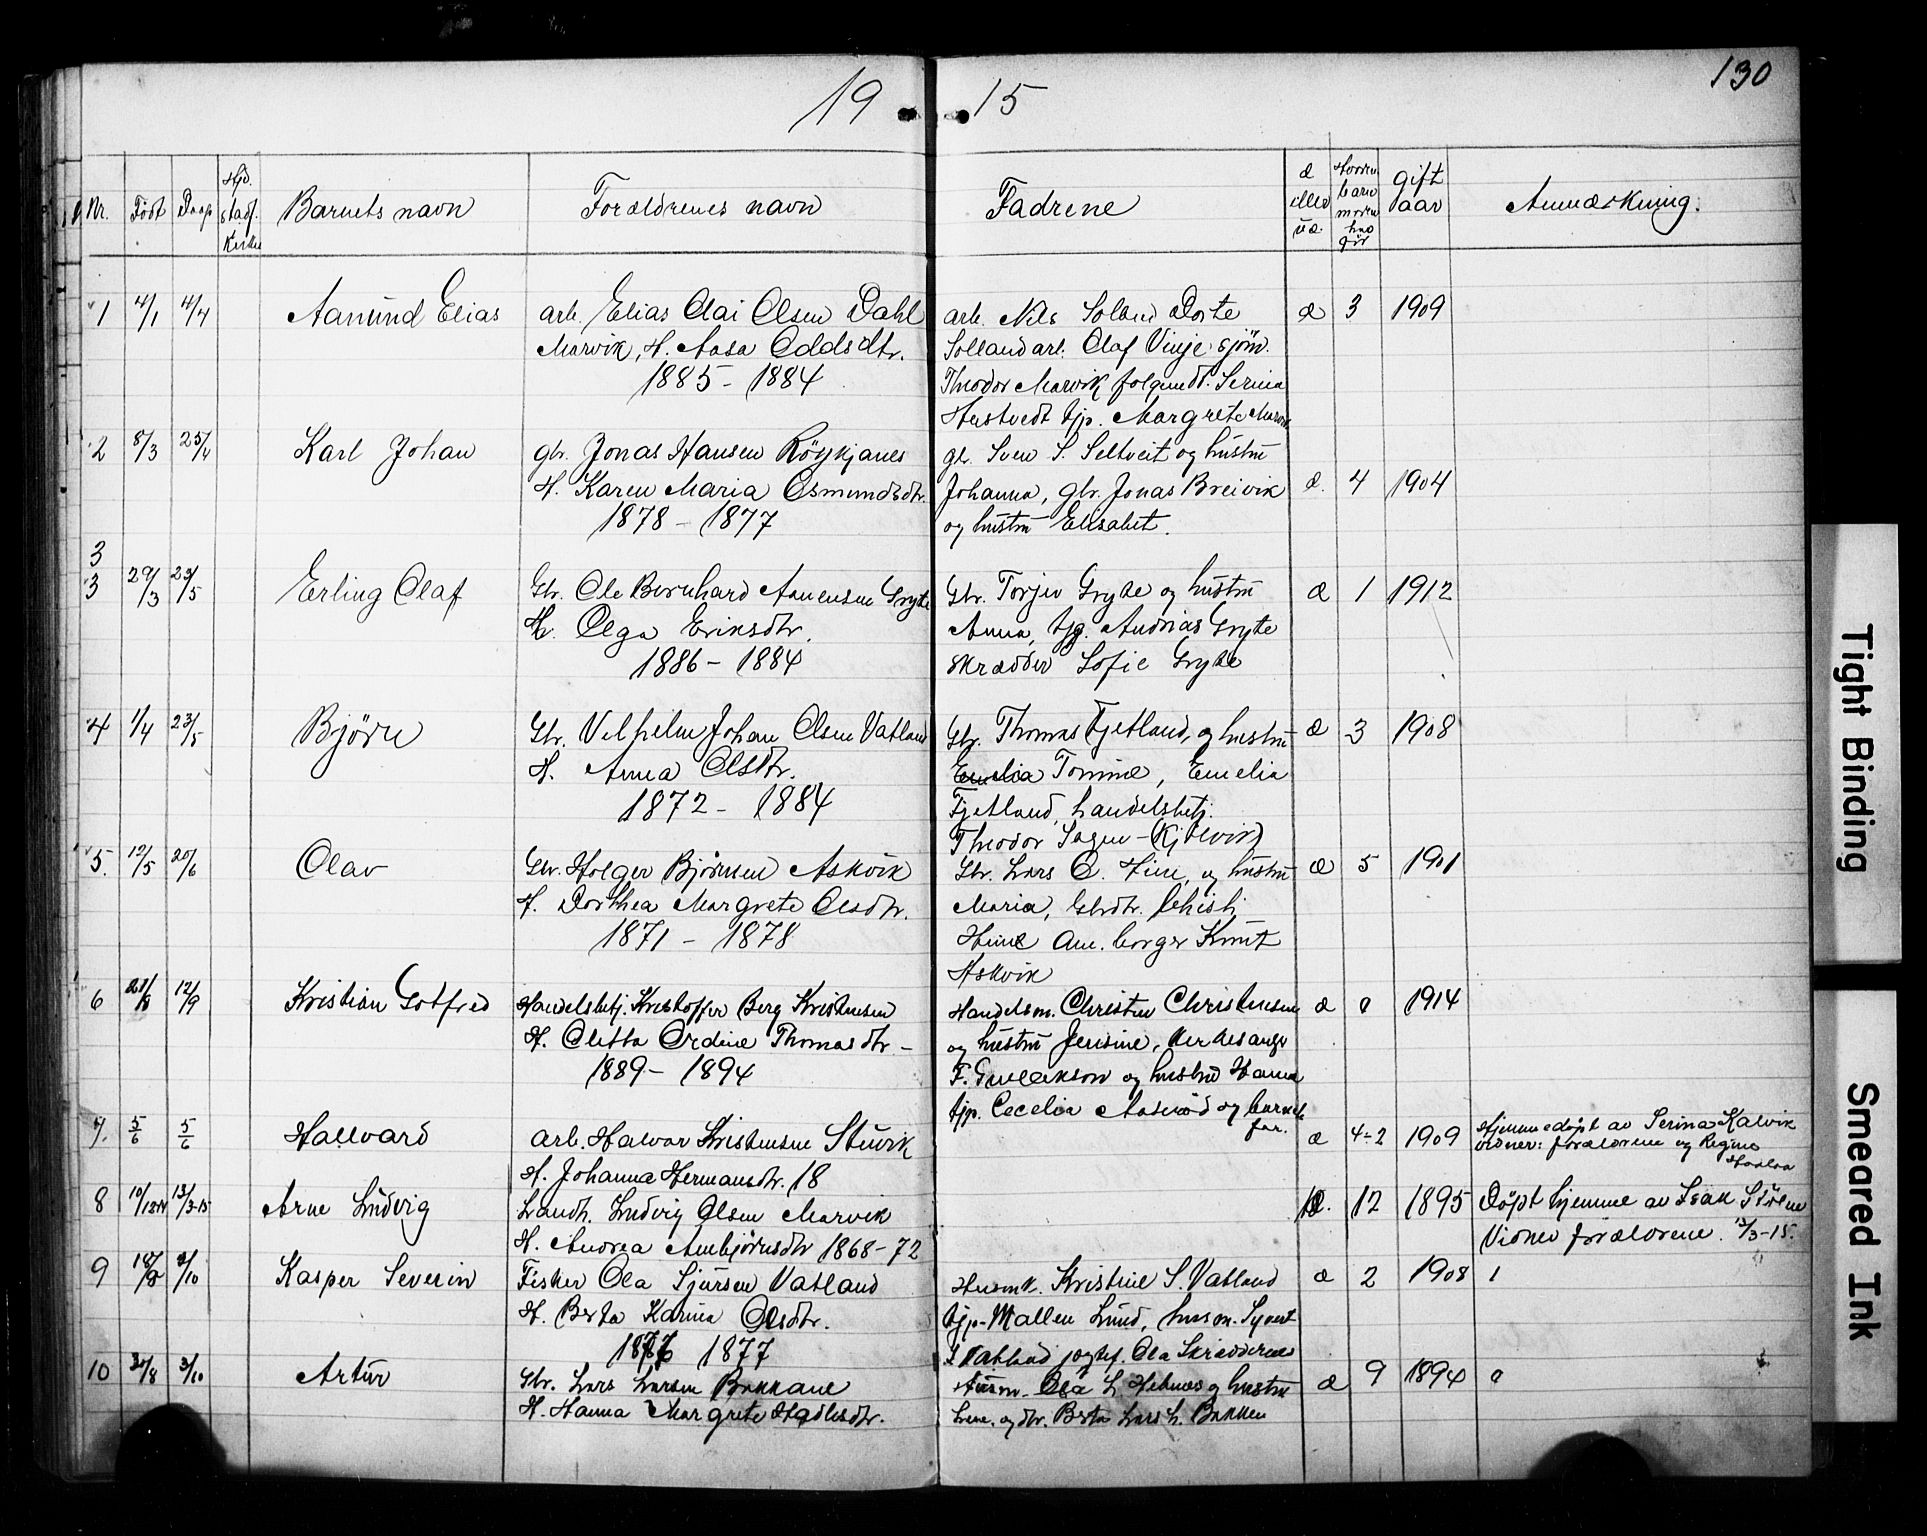 19 15
130
Nr. Født Daap Hjd. stadf. Kirke Barnets navn Foraldrenes navn Fadrene æ eller uæ. gift aar Anmærkning.
1 4/1 4/4 Aamund Elias arb. Elias Olai Olsen Dahl arb. Nils Solland Dorte æ 3 1909
Marvik, H. Aasa Oddsdtr. Solland arb. Olaf Vinje sjøm.
1885 - 1884 Theodor Marvik Serina
Hustvedt tjp. Margrete Marvik
2 8/3 25/4 Karl Johan gbr. Jonas Hansen Röykjanes gb. Sven S. Seltveit og hustru
H. Karen Maria Osmundsdtr. Johanna, gbr. Jonas Breivik æ. 4 1904
1878 - 1877 og hustru Elisabet.
3
3 29/3 23/5 Erling Olaf Gbr. Ole Bernhard Aanensen Gryte Gbr. Torjer Gryte og hustru æ 1 1912
H. Olga Eriksdtr. Anna, tjg. Andrias Gryte
1886 - 1884 skrædder Sofie Gryte
4 1/4 23/5 Bjørn Gbr. Velhelm Johan Olsen Vatland Gbr. Thomas Fjetland, og hustru æ 3 1908
H. Anna Olsdtr. Emelia Tomine, Emelia
1872 - 1884 Fjetland, handelsbetj.
Theodor Sagen - (Kjølvik)
5. 12/5 20/6 Olav Gbr. Holger Bjørnsen Askvik Gbr. Lars O. Hine, og hustru æ 5 1901
H. Dorthea Margrete Olsdtr. Maria, Gbrdtr.
1871 - 1878 Am. borger Knut
Askvik
6 28/8 12/9 Kristian Gotfred Handelsbetj. Kristoffer Berg Kristensen Handelsm. Christen Christensen æ 0 1914
H. Oletta Ordine Thomasdtr - og hustru Jensine,
1889 - 1894 og hustru Hanna
tjp. Cecelia Aasnød og barnets
far.
7. 5/6 5/6 Hallvard arb. Halvar Kristensen Stuvik æ 4-2 1909 Hjemmedøpt av Serina Kalvik
vidner: forældrene og Regine
H. Johanna Hermansdtr. 18
8 10/12-14 13/3-15 Arne Ludvig Landh. Ludvig Olsen Marvik æ. 12 1895 Døpt hjemme av Isak Stølene
H. Andrea Ambjørnsdtr 1868-72 Vidner forældrene. 13/3-15.
9 18/8 3/10 Kasper Severin Fisker Ola Sjursen Vatland Husmk. Kristine S. Vatland æ 2 1908 1
H. Berta Karina Olsdtr. tjp. Mallen Lund, husm. Syvert
1876 1877 S Vatland Ola Skreddernes
10 30/8 3/10 Artur Gbr. Lars Larsen Bakkane Husm. Ola L. Hebnes og hustru æ 9 1894 0
H. Hanna Margrete Hadlesdtr. Lene, og dtr. Berta Lars L. Bakken
Tight Binding
Smeared Ink